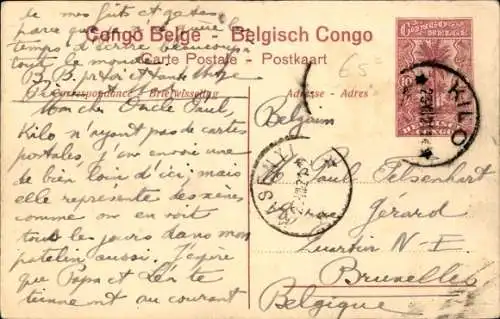 de mes faits et gestes
parce que
temps d'écrire beaucoup à
tout le monde
Congo Belge - Belgisch Congo
Carte Postale - Postkaart
Correspondance Briefwisseling
Adresse - Adres
65
CONGO BELGE
KILO
Mon cher Oncle Paul,
Kilo n'ayant pas de cartes
postales, j'en envoie une
de bien loin d'ici, mais
elle représente des scènes
comme on en voit
tous les jours dans mon
patelin aussi. J'espère
que Papa et Lén te
tiennent au courant
Belgium
Paul Pelsenhart
Gérard
Quartier N-E
Bruxelles
Belgique